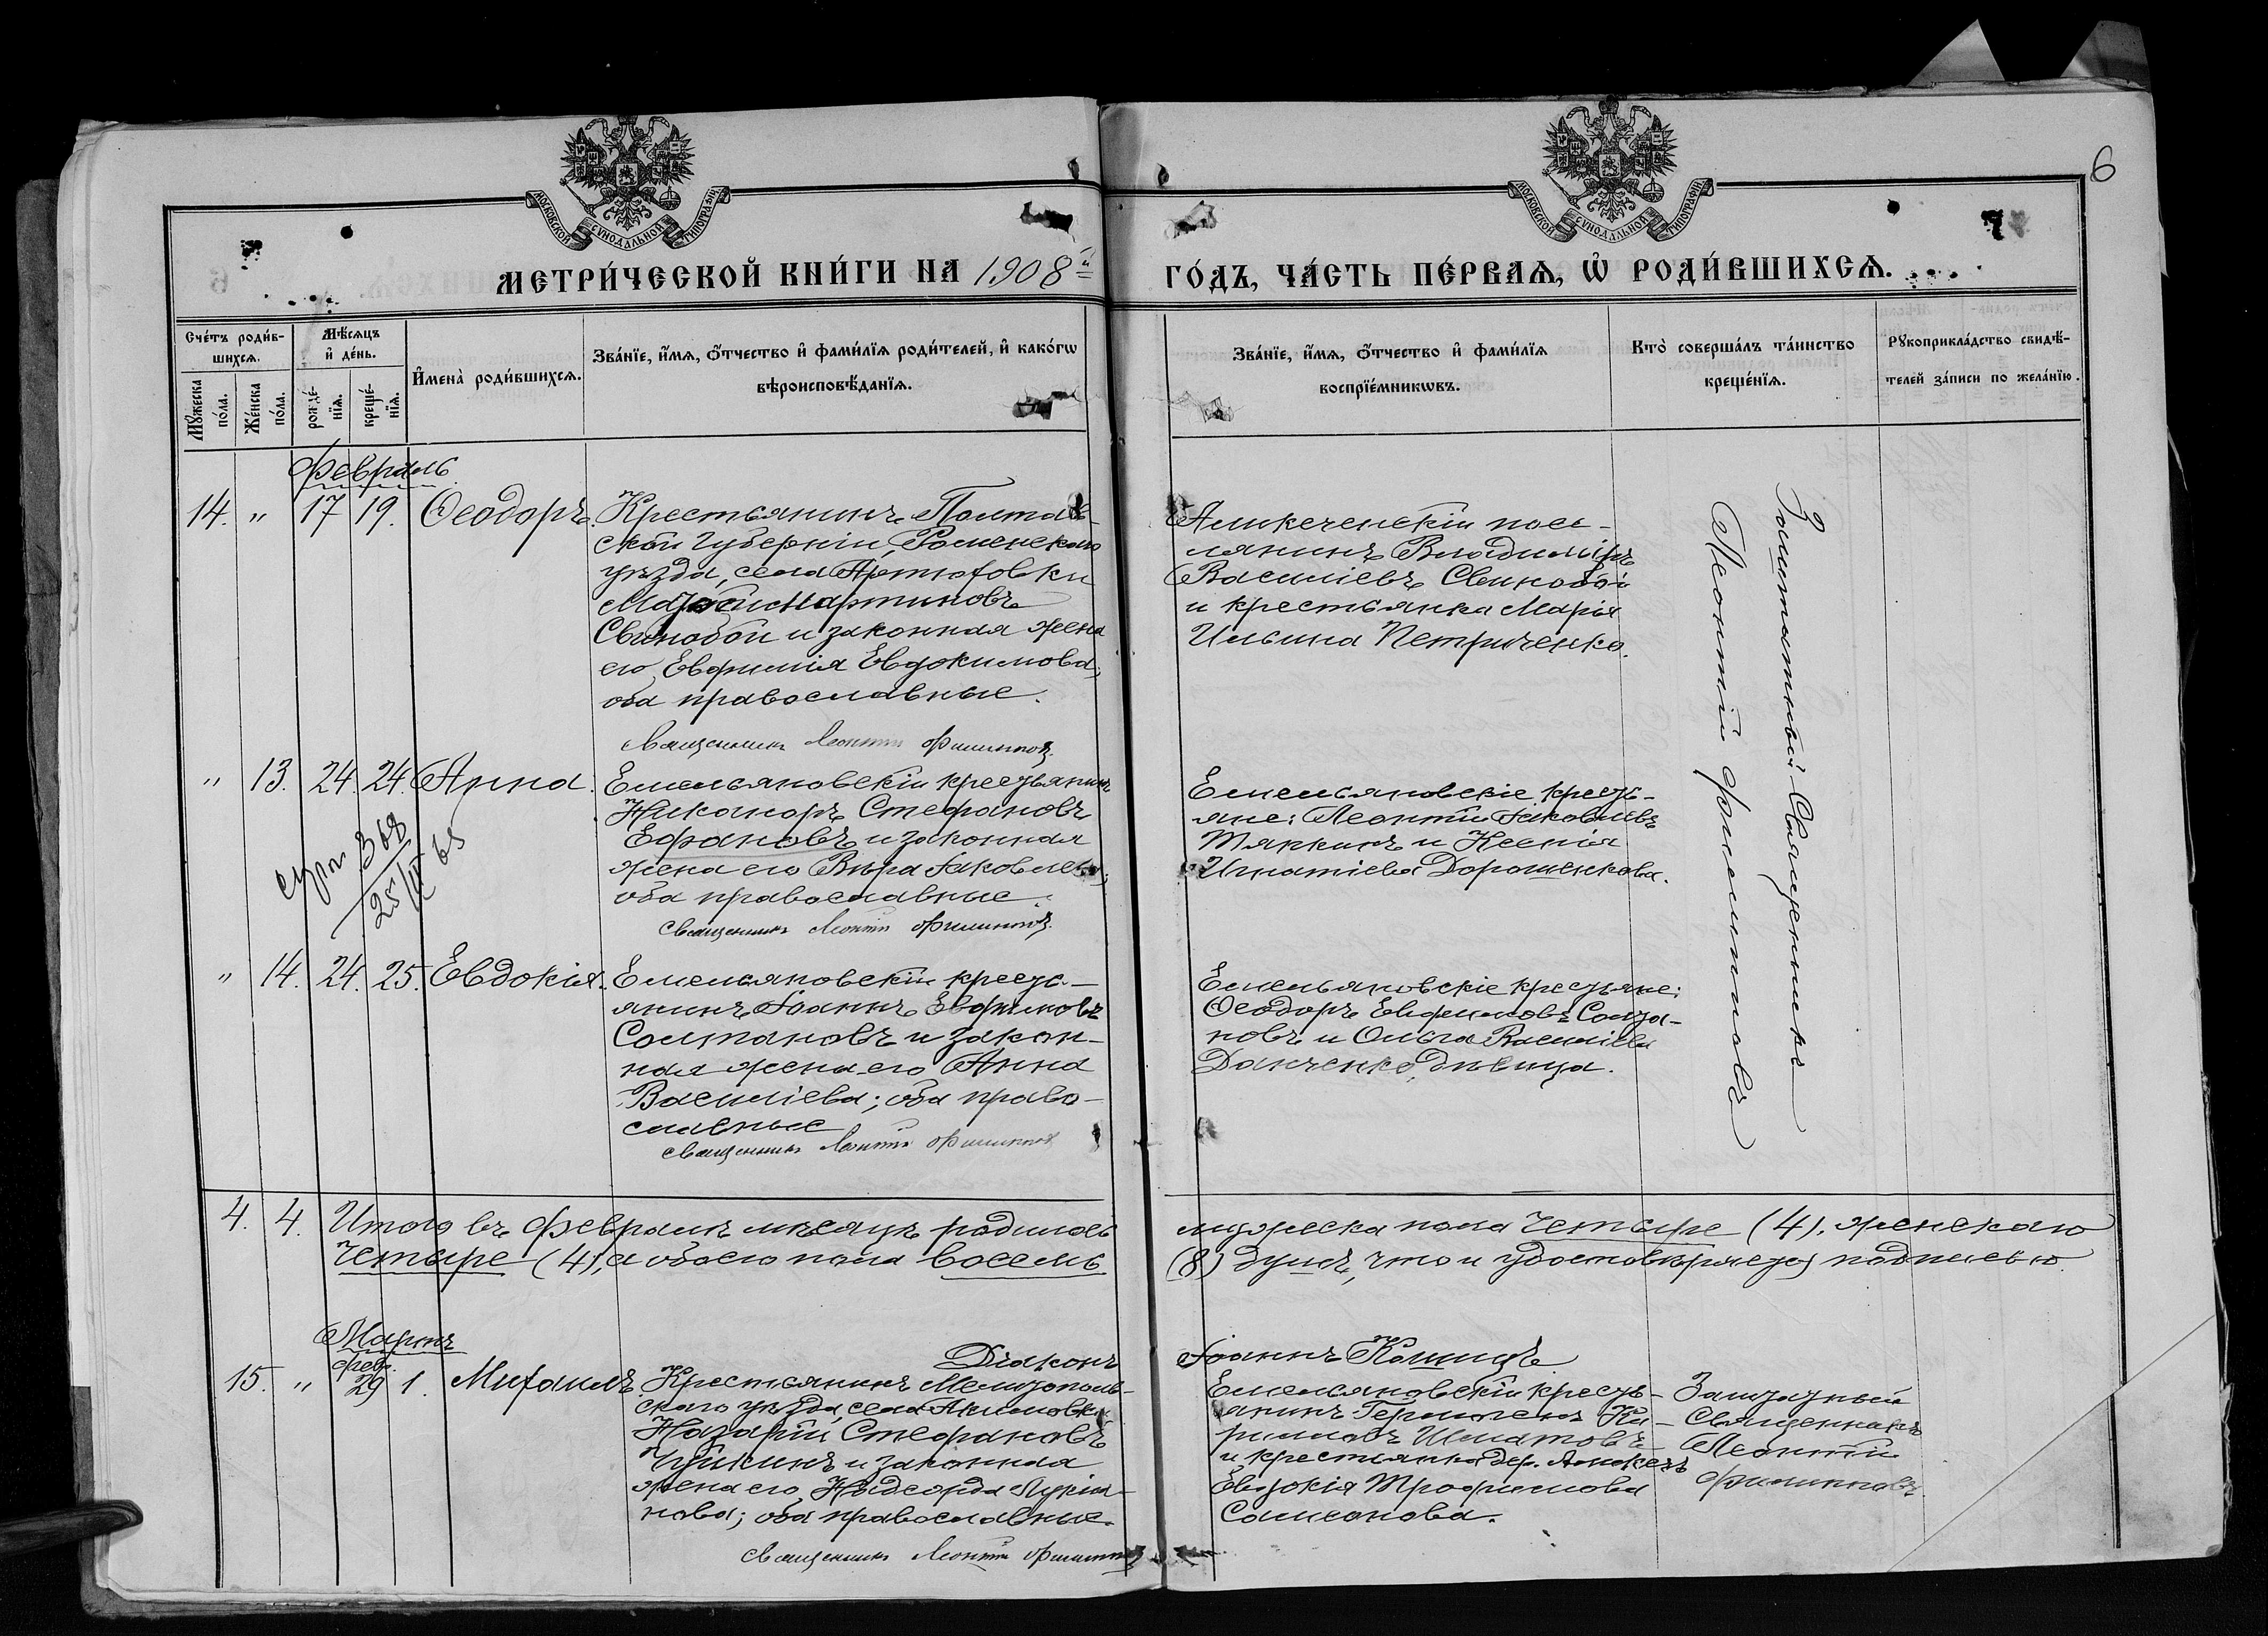 6
МОСКОВСКОЙ СѴНОДАЛЬНОЙ ТИПОГРАФІИ
МОСКОВСКОЙ СѴНОДАЛЬНОЙ ТИПОГРАФІИ
МЕТРИ́ЧЕСКОЙ КНИ́ГИ НА 1908й ГО́ДЪ, ЧА́СТЬ ПЕ́РВАѦ, Ѡ РОДИ́ВШИХСѦ.
Сче́тъ роди́в-
шихсѧ.
Мꙋ́жеска
по́ла.
Же́нска
по́ла.
Мѣ́сѧцъ
и҆ де́нь.
рожде́-
нїѧ.
креще́-
нїѧ.
И҆мена̀ роди́вшихсѧ.
Зва́нїе, и҆́мѧ, ѻ҆́тчество и҆ фами́лїѧ роди́телей, и҆ како́гѡ
вѣроисповѣ́данїѧ.
Зва́нїе, и҆́мѧ, ѻ҆́тчество и҆ фами́лїѧ
воспрїе́мникѡвъ.
Кто̀ соверша́лъ та́инство
креще́нїѧ.
Рꙋкоприкла́дство свидѣ́-
телей за́писи по жела́нїю.
Февраль
14. " 17 19. Ѳеодоръ.
Крестьянинъ Полтав-
ской губерніи, Роменскаго
уѣзда, села Артюховки
Мартиновъ
Свинобой и законная жена
его Евфимія Евдокимова;
оба православные.
Священникъ Леонтій Филипповъ
посе-
лянинъ Владиміръ
Василіевъ Свинобой
и крестьянка Марія
Ильина Петриченко.
Заштатный Священникъ
Леонтій Филипповъ
" 13. 24. 24. Анна.
Емельяновскій крестьянинъ
Никаноръ Стефановъ
Ефановъ и законная
жена его Вѣра Іаковлева;
оба православные.
Священникъ Леонтій Филипповъ
Емельяновскіе кресть-
яне: Леонтій Іаковлевъ
Тяркинъ и Ксенія
Игнатіева Дорошенкова.
368
25/IV 65
" 14. 24. 25. Евдокія.
Емельяновскій кресть-
янинъ Іоаннъ Евфимовъ
Солтановъ и закон-
ная жена его Анна
Василіева; оба право-
славные
Священникъ Леонтій Филипповъ
Емельяновскіе крестьяне:
Ѳеодоръ Евфимовъ Солта-
новъ и Ольга Василіева
Данченко, дѣвица.
4. 4. Итого въ Февралѣ мѣсяцѣ родилось мужеска пола четыре (4), женскаго
четыре (4), а обоего пола восемь (8) душъ, что и удостовѣряется подписью.
Діаконъ Іоаннъ
Мартъ
фев.
15. " 29 1. Михаилъ.
Крестьянинъ Мелитополь-
скаго уѣзда, села Акимовки
Назарій Стефановъ
и законная
жена его Лукіа-
нова; оба православные.
Священникъ Леонтій Филипповъ
Емельяновскій кресть-
янинъ Ки-
рилловъ
и крестьянка дер.
Евдокія Трофимова
Самсонова.
Заштатный
Священникъ
Леонтій
Филипповъ.